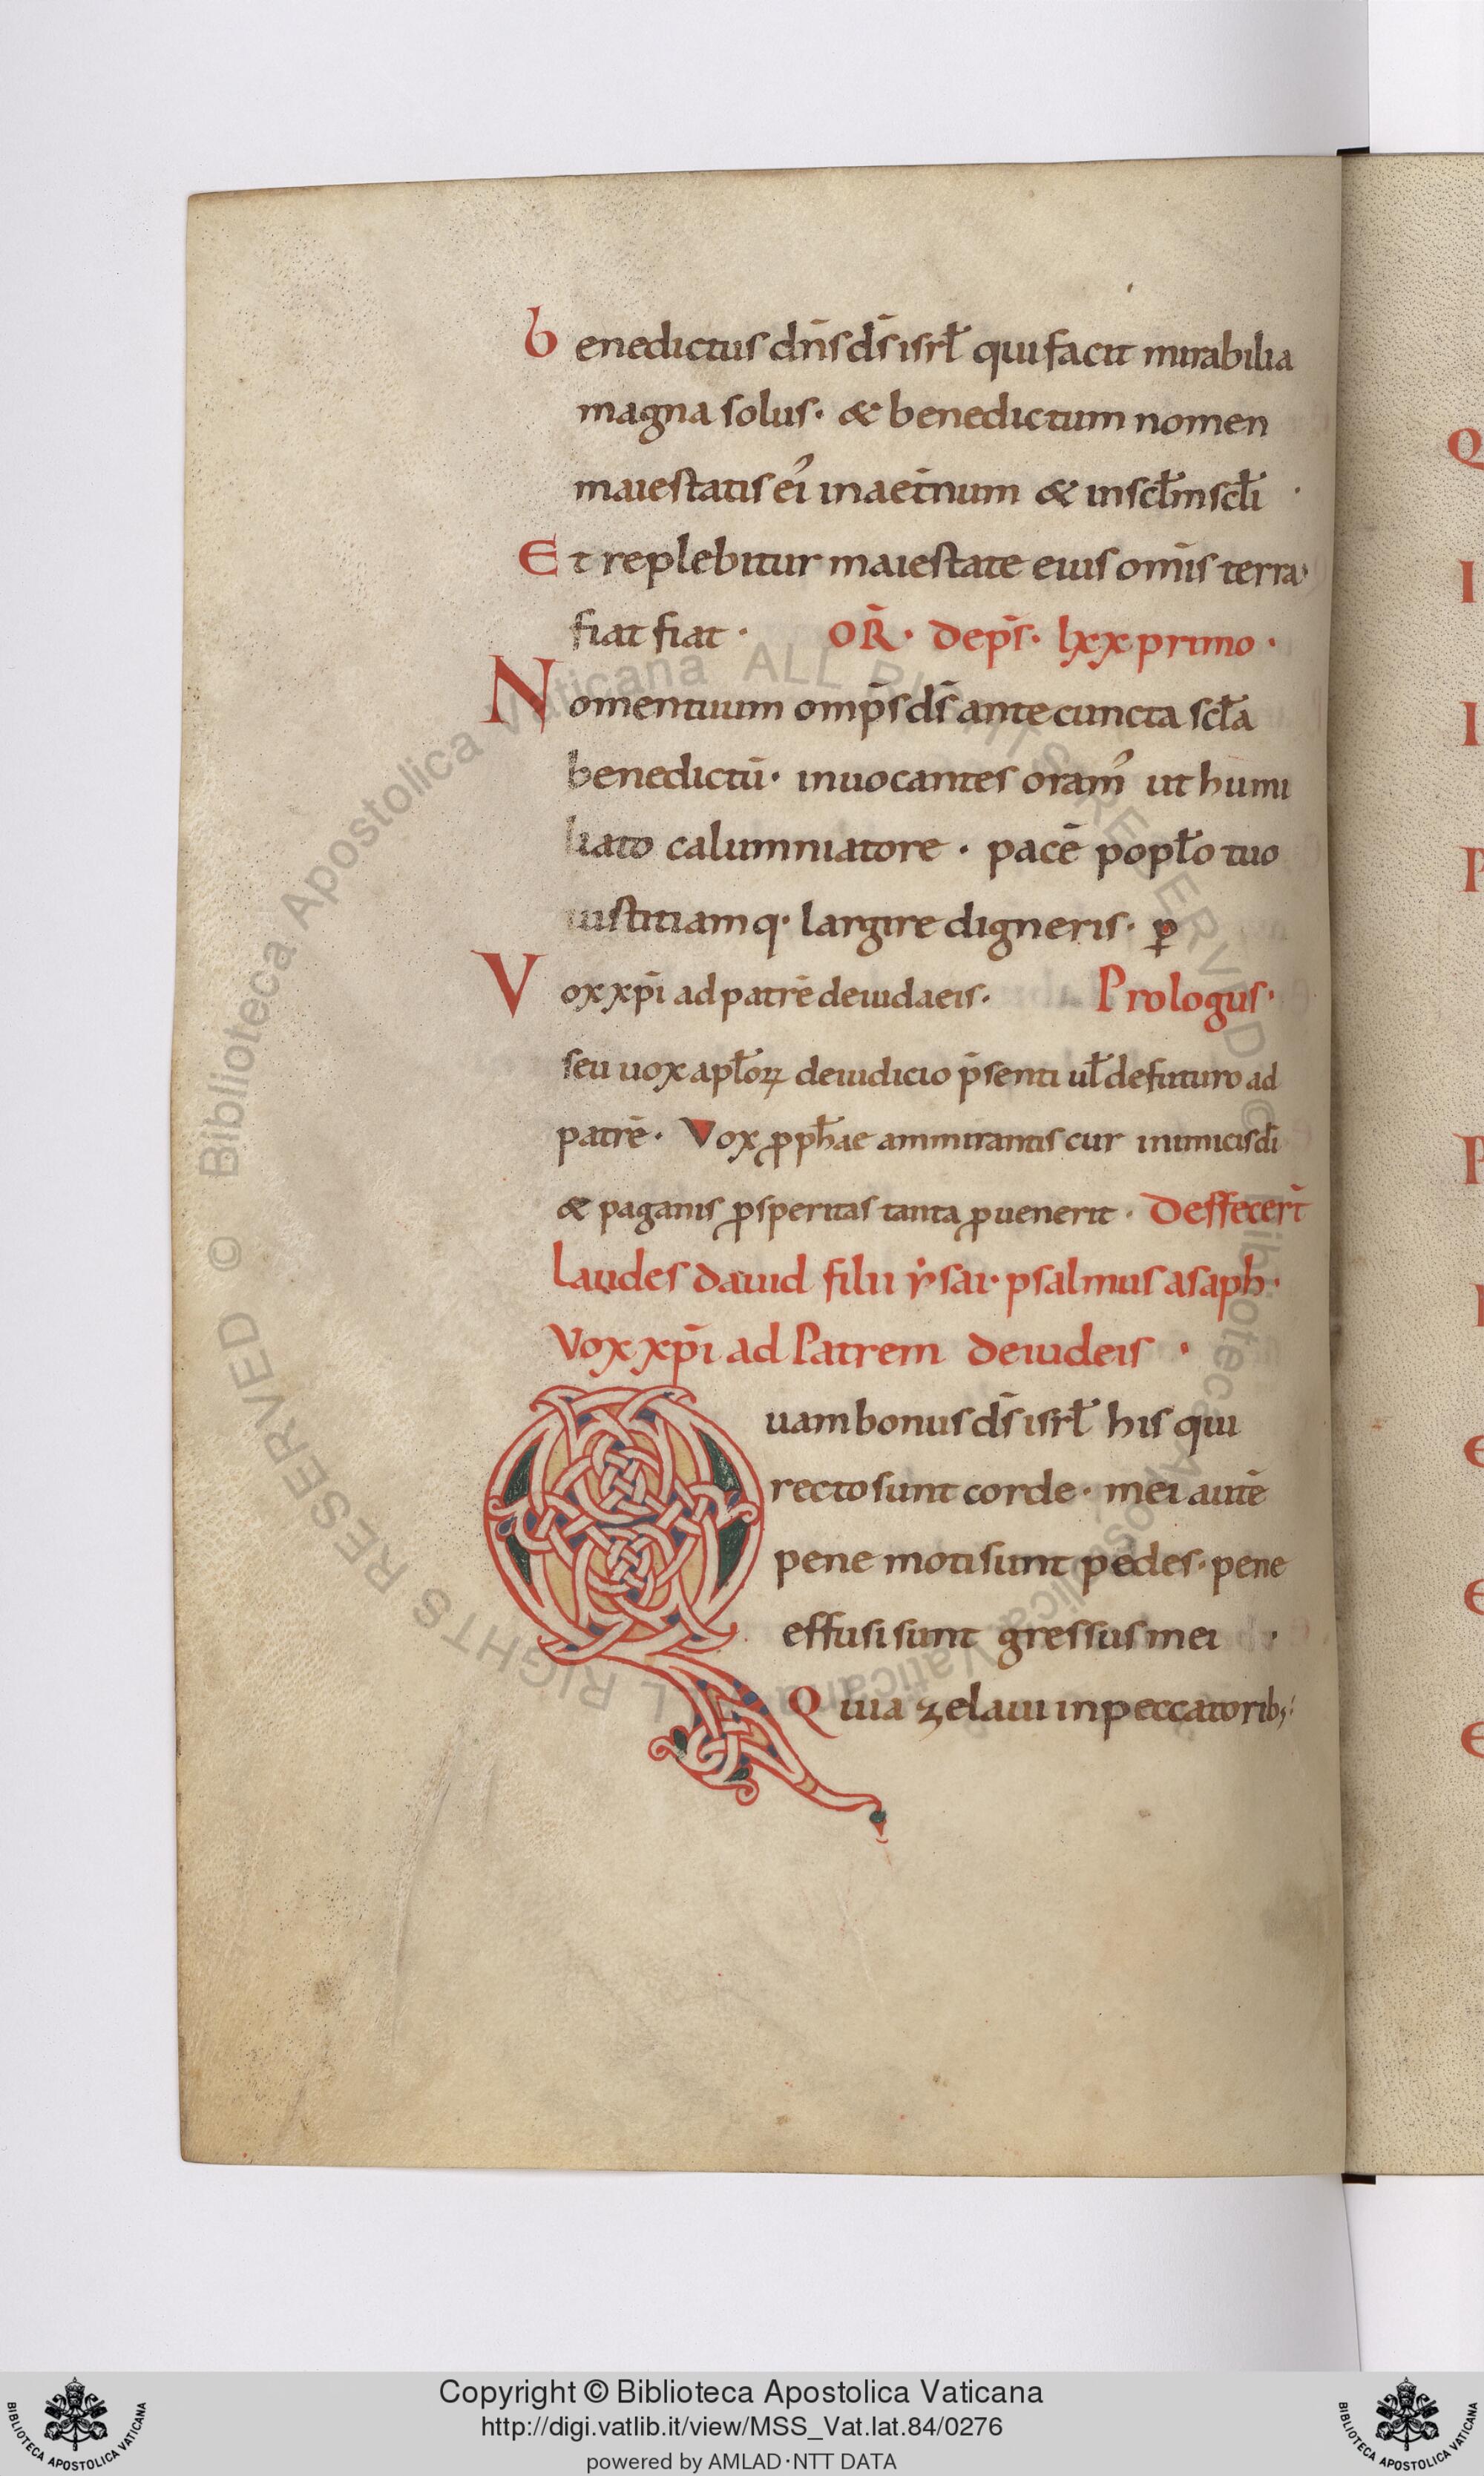 benedictus dn̄s ds̄ isrł qui facit mirabilia
magna solus· & benedictum nomen
maiestatis ei᾽ in aet̄num & in scłm scłi ·
Et replebitur maiestate eius om̄is terra
fiat fiat · OR̄· de ps̄· lxx primo ·
Nomen tuum omp̄s ds̄ ante cuncta scła
benedictū· inuocantes oram᾽ ut humi
liato calumniatore · pacē popło tuo
iustitiamq· largire digneris· ꝑ
Vox xp̄i ad patrē de iudaeis· Prologus·
seu uox apłoꝝ de iudicio p̄senti uł de futuro ad
patrē· Vox ꝓph̄ae ammirantis cur inimicis dī
& paganis ꝓsperitas tanta ꝓuenerit · Deffecer̄t
Laudes dauid filii ẏsai· psalmus asaph·
Vox xp̄i ad Patrem de iudeis ·
Quam bonus ds̄ isrł his qui
recto sunt corde· mei autē
pene moti sunt pedes· pene
effusi sunt gressus mei ·
Quia zelaui in peccatorib;
Q
I
I
P
P
E
E
E
© Biblioteca Apostolica Vaticana ALL RIGHTS RESERVED
© Biblioteca Apostolica Vaticana ALL RIGHTS RESERVED
Copyright © Biblioteca Apostolica Vaticana
http://digi.vatlib.it/view/MSS_Vat.lat.84/0276
powered by AMLAD·NTT DATA
BIBLIOTECA APOSTOLICA VATICANA
BIBLIOTECA APOSTOLICA VATICANA